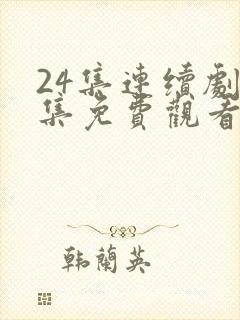 24集連續劇
集免費觀看
韩蘭英